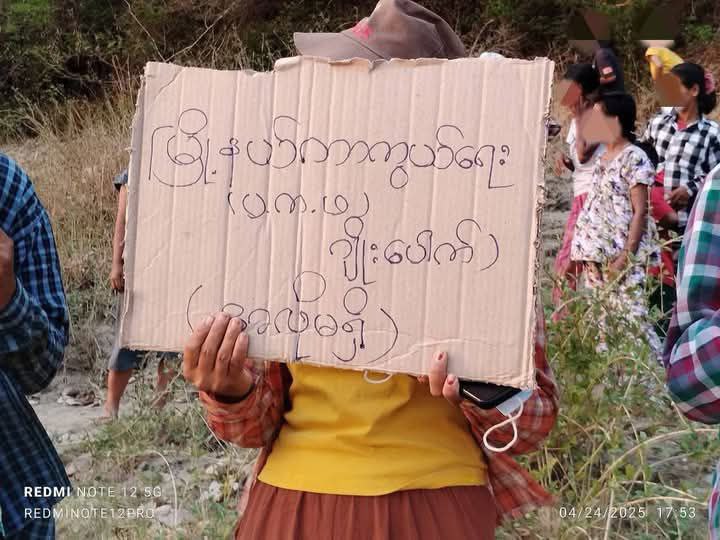 မြို့နယ်ကာကွယ်ရေး
(ပ.က.ဖ)
ဂျိုးပေါက်)
(အလိုမရှိ)
REDMI NOTE 12 5G
REDMINOTE12PRO
04/24/2025 17:53